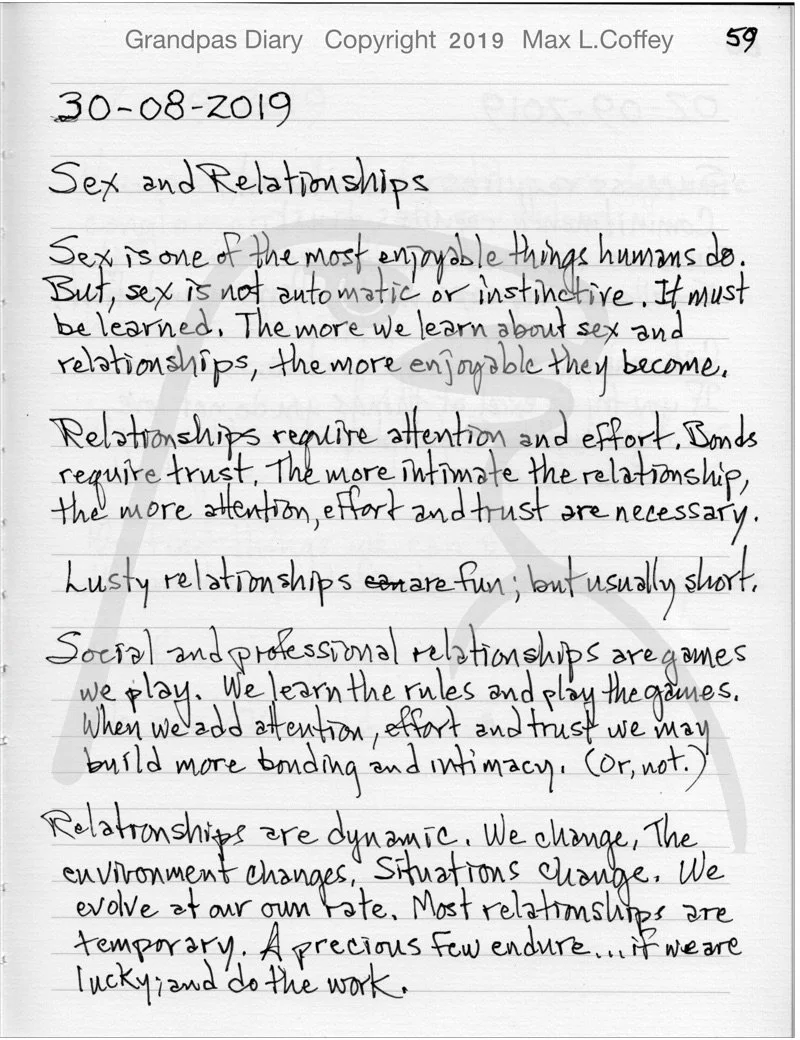 Grandpas Diary Copyright 2019 Max L.Coffey 59
30-08-2019
Sex and Relationships
Sex is one of the most enjoyable things humans do.
But, sex is not automatic or instinctive. It must
be learned. The more we learn about sex and
relationships, the more enjoyable they become.
Relationships require attention and effort. Bonds
require trust. The more intimate the relationship,
the more attention, effort and trust are necessary.
Lusty relationships can are fun; but usually short.
Social and professional relationships are games
we play. We learn the rules and play the games.
When we add attention, effort and trust we may
build more bonding and intimacy. (Or, not.)
Relationships are dynamic. We change, The
environment changes, Situations change. We
evolve at our own rate. Most relationships are
temporary. A precious few endure...if we are
lucky; and do the work.